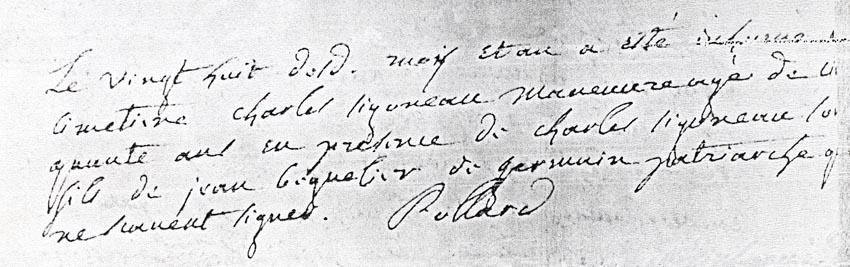 Le vingt huit desd. mois et an a esté inhumé
cimetiere charles sigoneau maneuvre agé de
quante ans en presence de charles sigoneau
fils de jean bequelier de germain patriarche q
ne scavent signer. Pollard